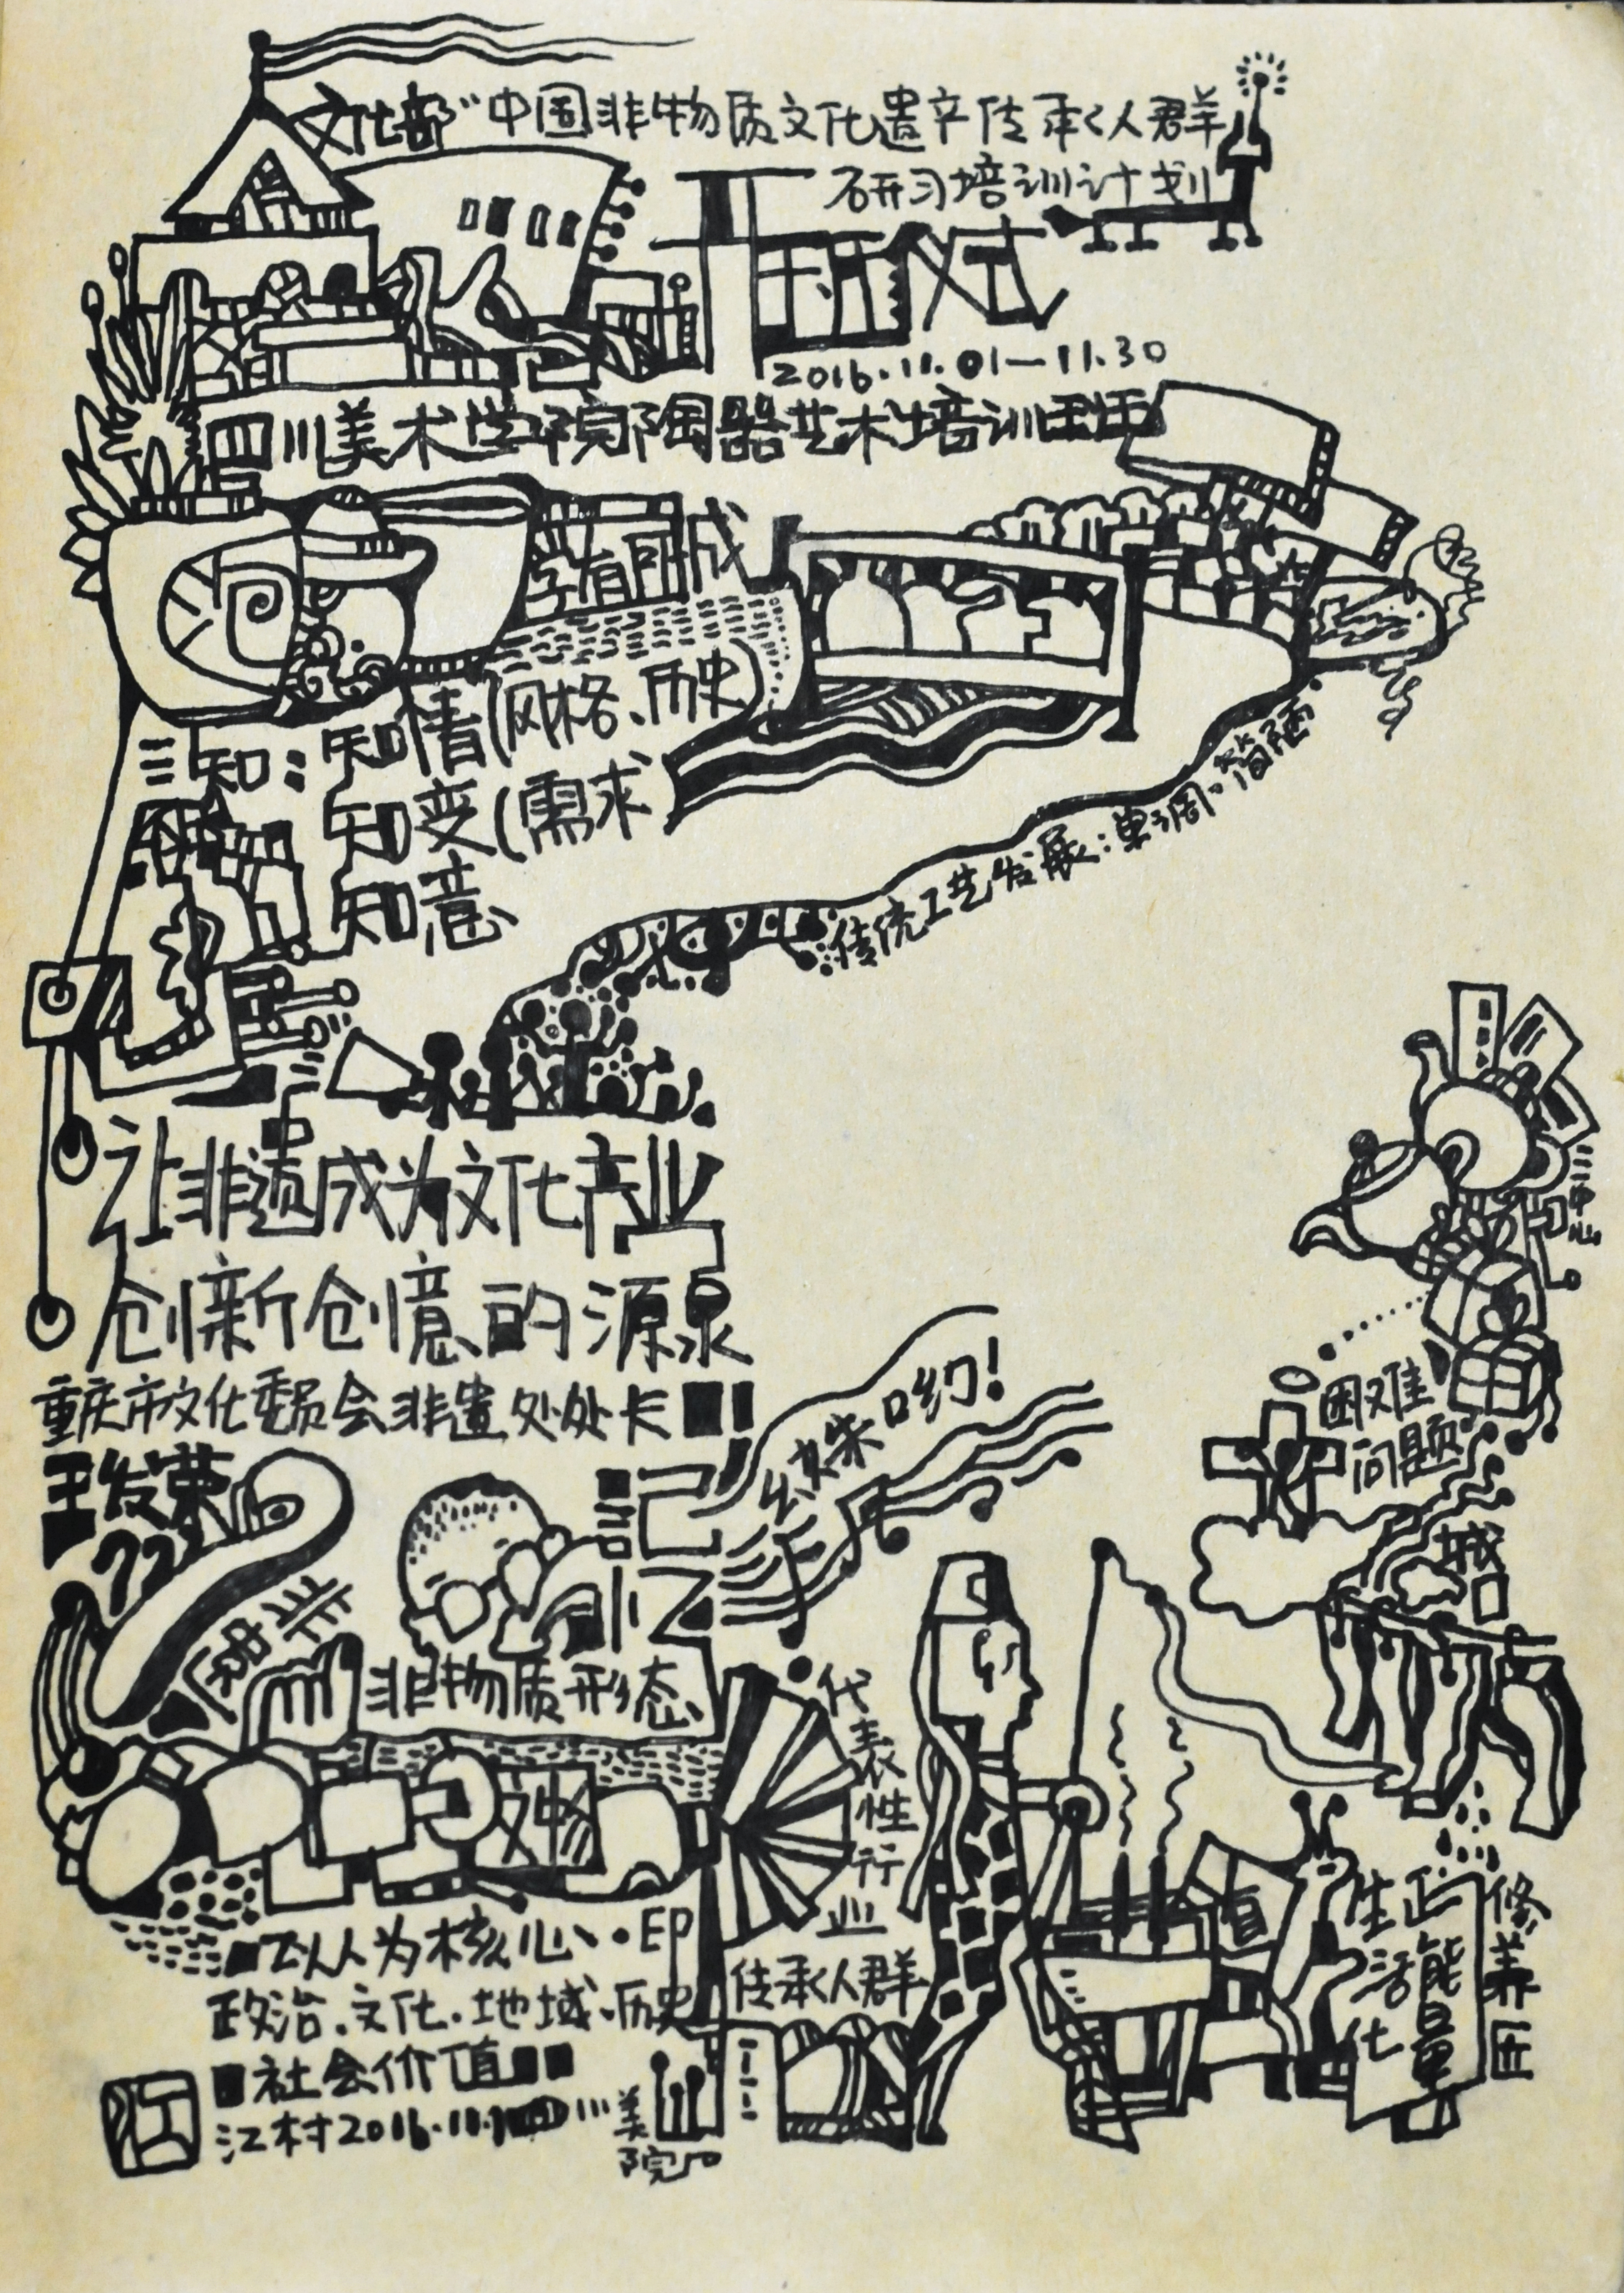 文化部“中国非物质文化遗产传承人群
研习培训计划
开班仪式
2016.11.01—11.30
四川美术学院陶器艺术培训班
学有所成
三知：知情(风格、历史)
知变(需求
知意
传统工艺发展：单调。简陋
让非遗成为文化产业
创新创意的源泉
重庆市文化委员会非遗处处长
王发荣
公妹哟！
记忆
困难
问题
城口
非物质形态
文物
代表性行业
传承人群
以人为核心、·印
政治.文化.地域、历史
社会价值
江村2016.11.1
川美院
生活化
正能量
修养匠